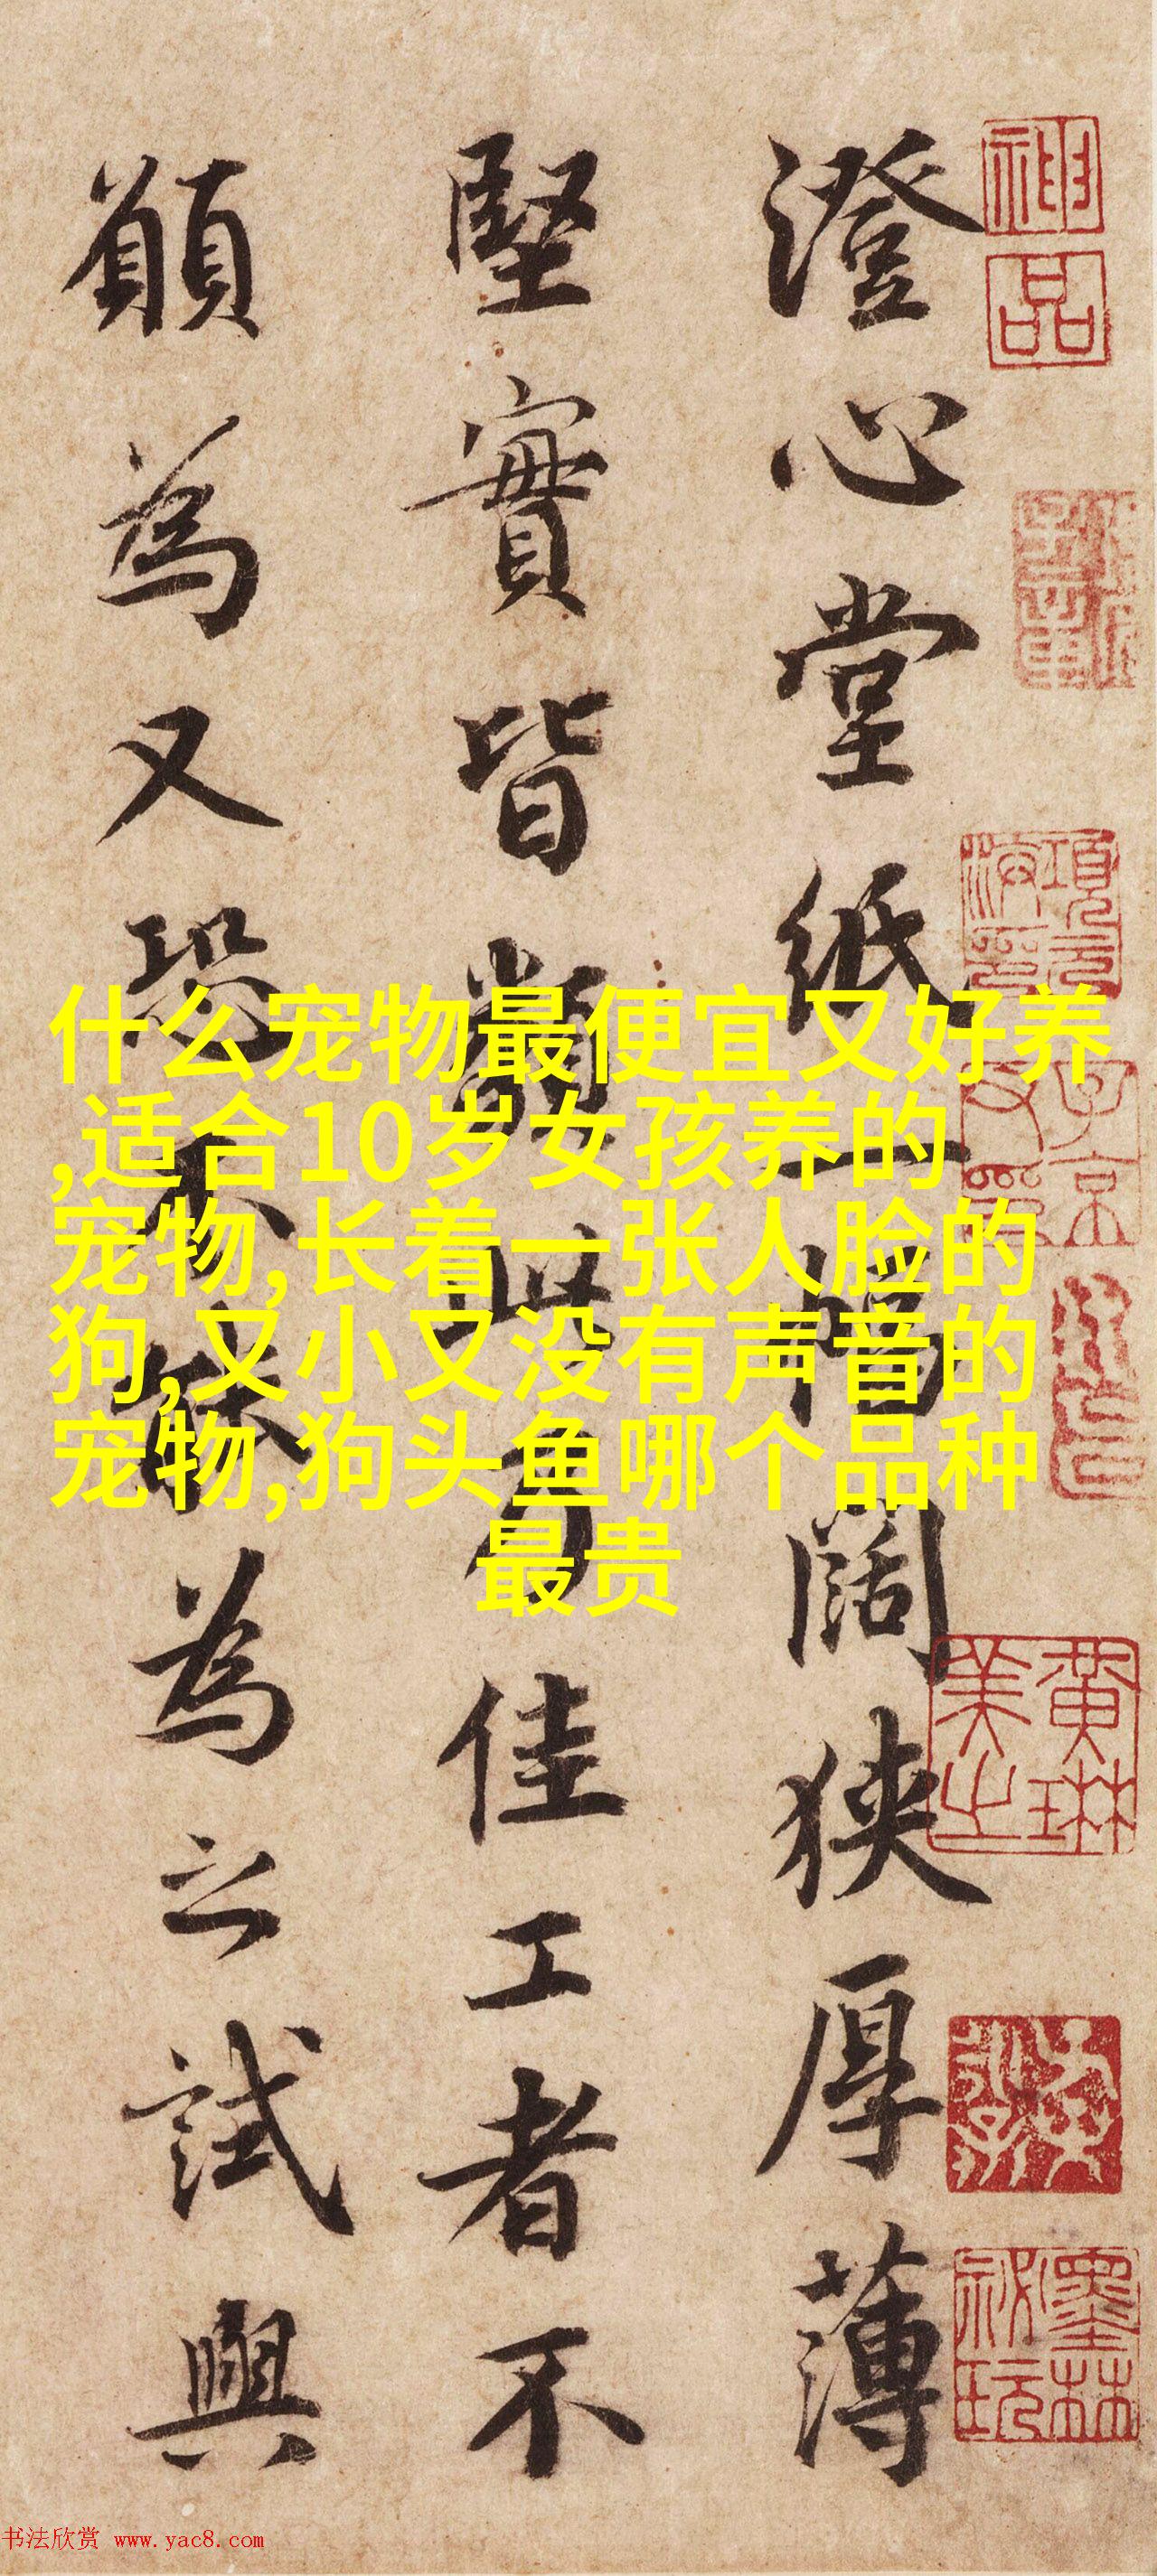 澄心堂紙一幅闊狹厚薄
堅實皆類此乃佳工者不
願為又恐不能為之試與
什么宠物最便宜又好养
,适合10岁女孩养的
宠物,长着一张人脸的
狗,又小又没有声音的
宠物,狗头鱼哪个品种
最贵
神
品
項元
黃琳
美之
书法欣赏 www.yac8.com